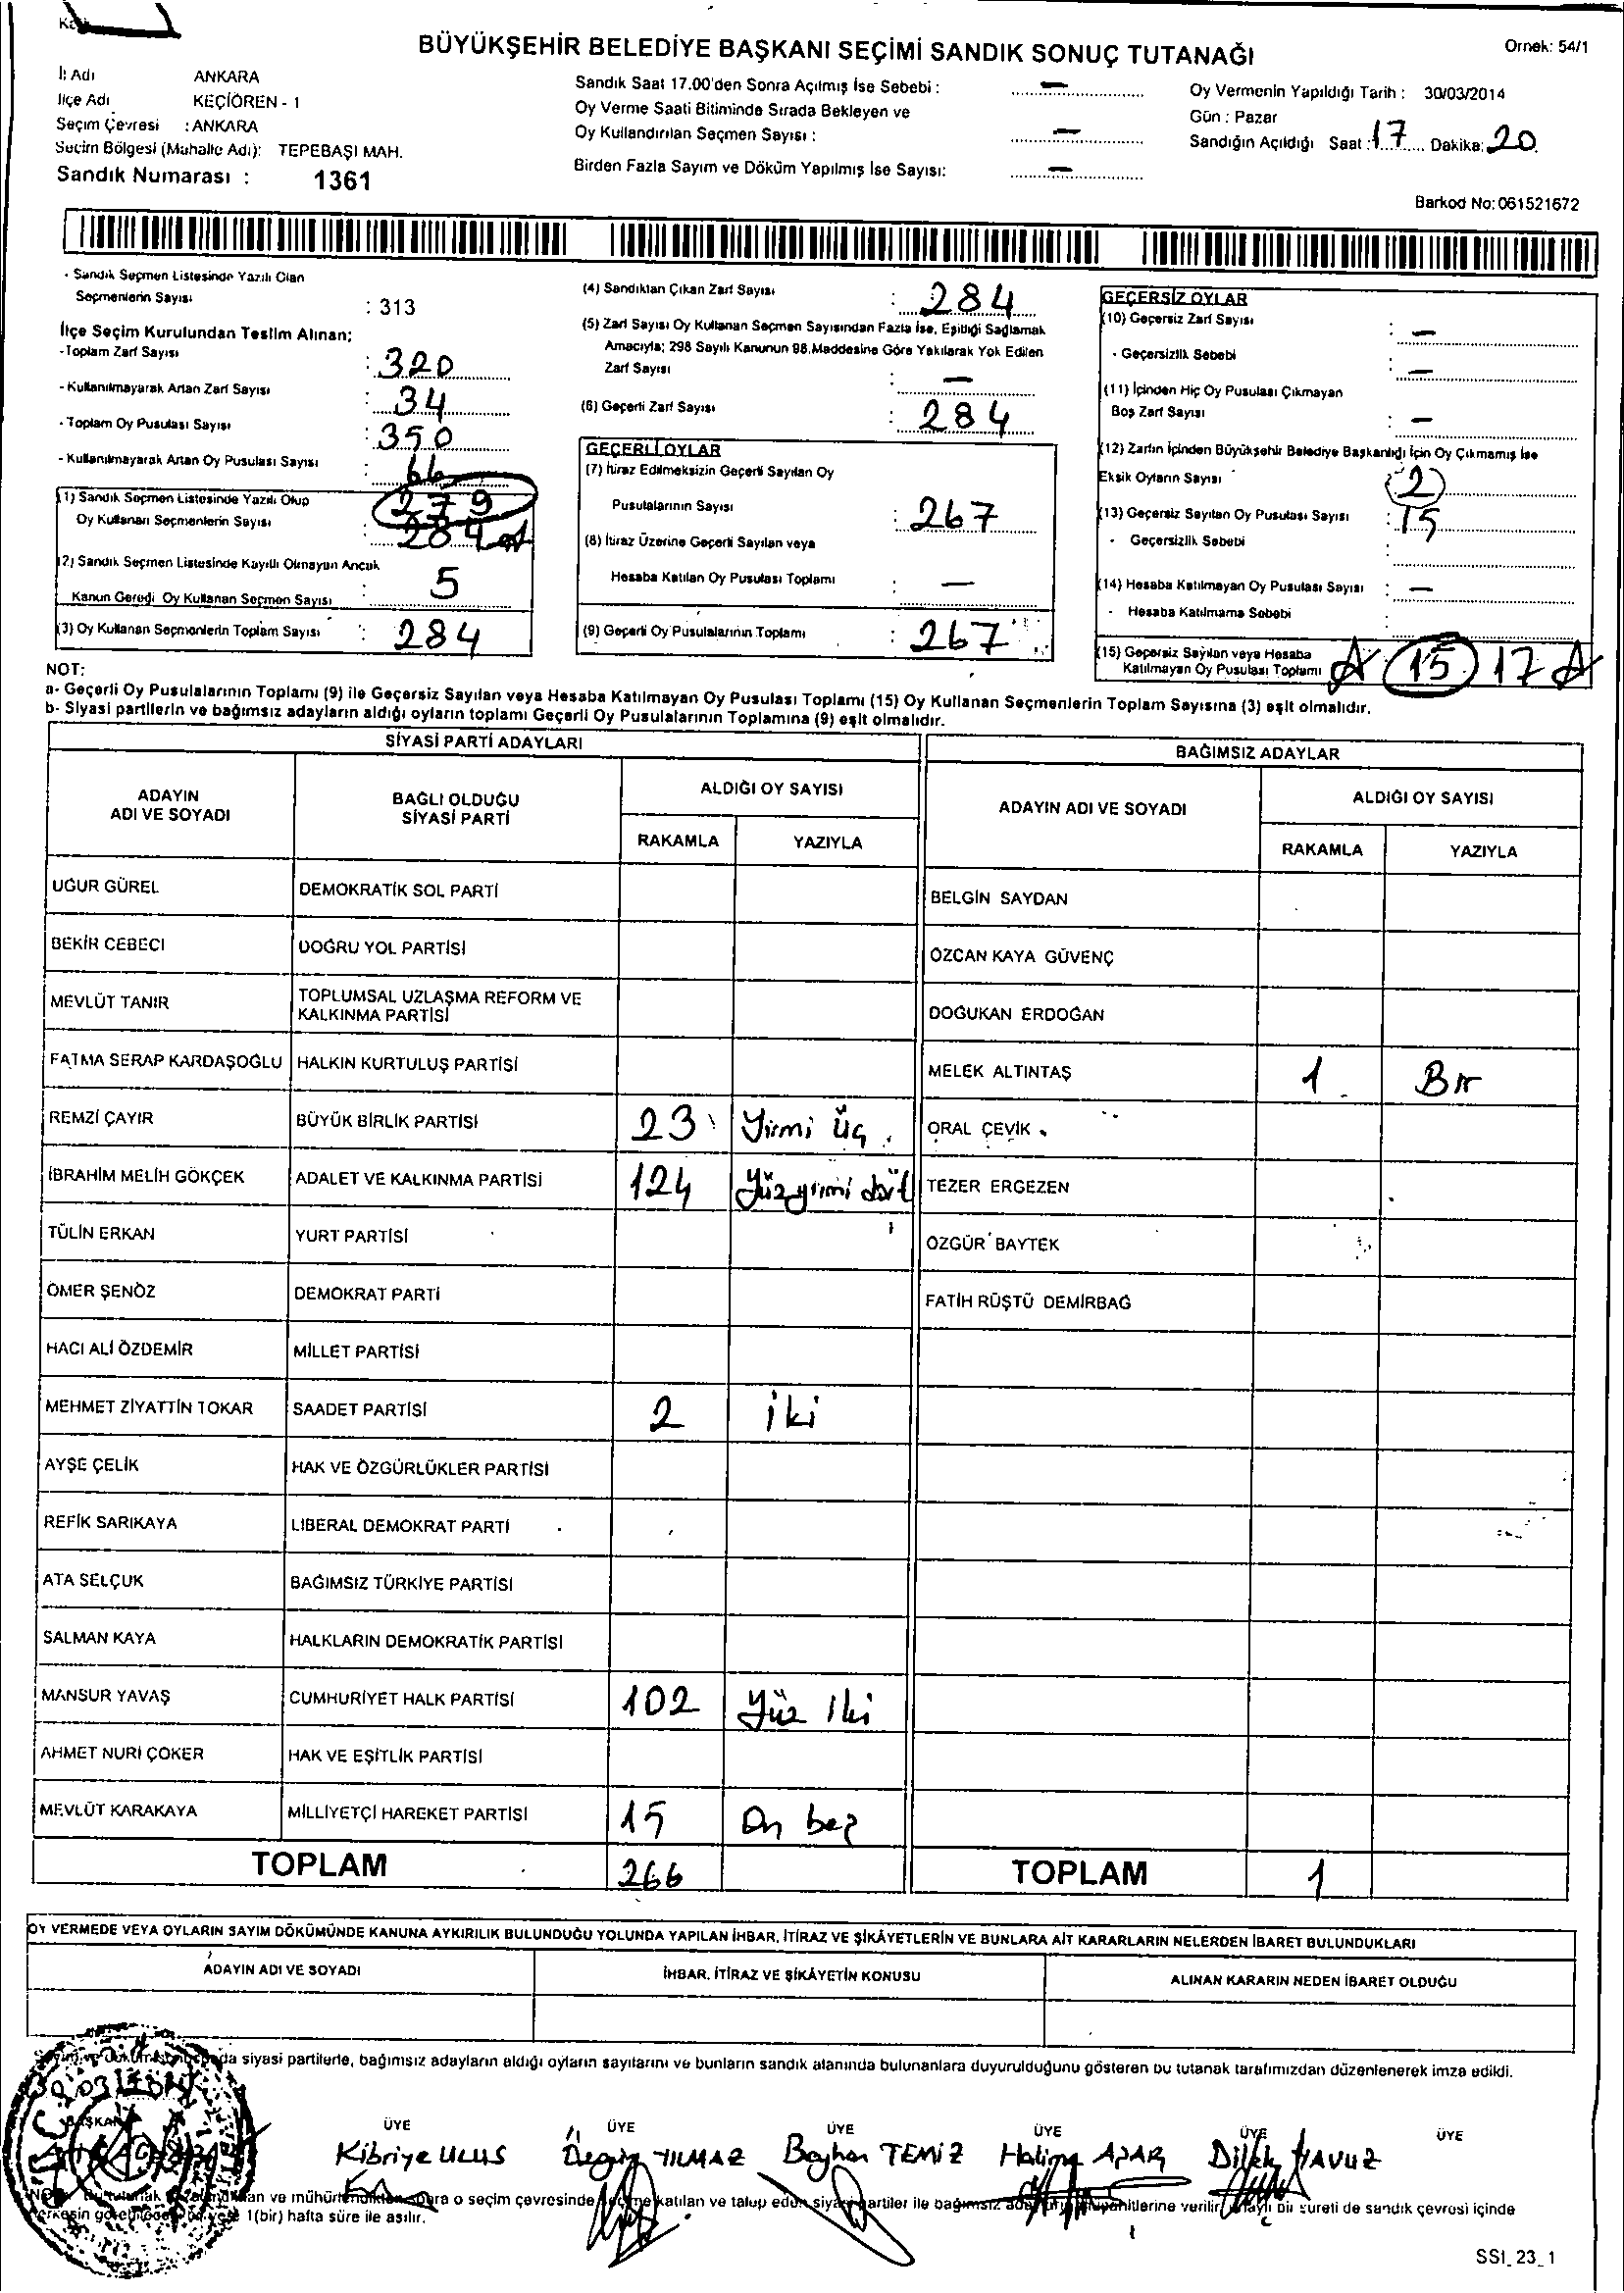 BÜYÜKŞEHİR BELEDİYE BAŞKANI SEÇİMİ SANDIK SONUÇ TUTANAĞI
Örnek: 54/1
İl Adı ANKARA
İlçe Adı KEÇİÖREN - 1
Seçim Çevresi : ANKARA
Seçim Bölgesi (Mahalle Adı): TEPEBAŞI MAH.
Sandık Numarası : 1361
Sandık Saat 17.00'den Sonra Açılmış İse Sebebi : —
Oy Verme Saati Bitiminde Sırada Bekleyen ve
Oy Kullandırılan Seçmen Sayısı : —
Birden Fazla Sayım ve Döküm Yapılmış İse Sayısı: —
Oy Vermenin Yapıldığı Tarih : 30/03/2014
Gün : Pazar
Sandığın Açıldığı Saat : 17 Dakika: 20
Barkod No: 061521672
- Sandık Seçmen Listesinde Yazılı Olan
Seçmenlerin Sayısı : 313
İlçe Seçim Kurulundan Teslim Alınan;
- Toplam Zarf Sayısı : 320
- Kullanılmayarak Artan Zarf Sayısı : 34
- Toplam Oy Pusulası Sayısı : 350
- Kullanılmayarak Artan Oy Pusulası Sayısı : 66
(1) Sandık Seçmen Listesinde Yazılı Olup 279
Oy Kullanan Seçmenlerin Sayısı : 284
(2) Sandık Seçmen Listesinde Kayıtlı Olmayan Ancak
Kanun Gereği Oy Kullanan Seçmen Sayısı : 5
(3) Oy Kullanan Seçmenlerin Toplam Sayısı : 284
(4) Sandıktan Çıkan Zarf Sayısı : 284
(5) Zarf Sayısı Oy Kullanan Seçmen Sayısından Fazla İse, Eşitliği Sağlamak
Amacıyla; 298 Sayılı Kanunun 98.Maddesine Göre Yakılarak Yok Edilen
Zarf Sayısı : —
(6) Geçerli Zarf Sayısı : 284
GEÇERLİ OYLAR
(7) İtiraz Edilmeksizin Geçerli Sayılan Oy
Pusulalarının Sayısı : 267
(8) İtiraz Üzerine Geçerli Sayılan veya
Hesaba Katılan Oy Pusulası Toplamı : —
(9) Geçerli Oy Pusulalarının Toplamı : 267
GEÇERSİZ OYLAR
(10) Geçersiz Zarf Sayısı : —
- Geçersizlik Sebebi : —
(11) İçinden Hiç Oy Pusulası Çıkmayan
Boş Zarf Sayısı : —
(12) Zarfın İçinden Büyükşehir Belediye Başkanlığı İçin Oy Çıkmamış İse
Eksik Oyların Sayısı : 2
(13) Geçersiz Sayılan Oy Pusulası Sayısı : 15
- Geçersizlik Sebebi :
(14) Hesaba Katılmayan Oy Pusulası Sayısı : —
- Hesaba Katılmama Sebebi :
(15) Geçersiz Sayılan veya Hesaba
Katılmayan Oy Pusulası Toplamı 15 17
NOT:
a- Geçerli Oy Pusulalarının Toplamı (9) ile Geçersiz Sayılan veya Hesaba Katılmayan Oy Pusulası Toplamı (15) Oy Kullanan Seçmenlerin Toplam Sayısına (3) eşit olmalıdır.
b- Siyasi partilerin ve bağımsız adayların aldığı oyların toplamı Geçerli Oy Pusulalarının Toplamına (9) eşit olmalıdır.
SİYASİ PARTİ ADAYLARI
ADAYIN ADI VE SOYADI BAĞLI OLDUĞU SİYASİ PARTİ ALDIĞI OY SAYISI
RAKAMLA YAZIYLA
UĞUR GÜREL DEMOKRATİK SOL PARTİ
BEKİR CEBECİ DOĞRU YOL PARTİSİ
MEVLÜT TANIR TOPLUMSAL UZLAŞMA REFORM VE
KALKINMA PARTİSİ
FATMA SERAP KARDAŞOĞLU HALKIN KURTULUŞ PARTİSİ
REMZİ ÇAYIR BÜYÜK BİRLİK PARTİSİ 23 Yirmi üç
İBRAHİM MELİH GÖKÇEK ADALET VE KALKINMA PARTİSİ 124 Yüzyirmi dört
TÜLİN ERKAN YURT PARTİSİ
ÖMER ŞENÖZ DEMOKRAT PARTİ
HACI ALİ ÖZDEMİR MİLLET PARTİSİ
MEHMET ZİYATTİN TOKAR SAADET PARTİSİ 2 iki
AYŞE ÇELİK HAK VE ÖZGÜRLÜKLER PARTİSİ
REFİK SARIKAYA LİBERAL DEMOKRAT PARTİ
ATA SELÇUK BAĞIMSIZ TÜRKİYE PARTİSİ
SALMAN KAYA HALKLARIN DEMOKRATİK PARTİSİ
MANSUR YAVAŞ CUMHURİYET HALK PARTİSİ 102 Yüz iki
AHMET NURİ ÇOKER HAK VE EŞİTLİK PARTİSİ
MEVLÜT KARAKAYA MİLLİYETÇİ HAREKET PARTİSİ 15 On beş
TOPLAM 266
BAĞIMSIZ ADAYLAR
ADAYIN ADI VE SOYADI ALDIĞI OY SAYISI
RAKAMLA YAZIYLA
BELGİN SAYDAN
ÖZCAN KAYA GÜVENÇ
DOĞUKAN ERDOĞAN
MELEK ALTINTAŞ 1 Bir
ORAL ÇEVİK
TEZER ERGEZEN
ÖZGÜR BAYTEK
FATİH RÜŞTÜ DEMİRBAĞ
TOPLAM 1
OY VERMEDE VEYA OYLARIN SAYIM DÖKÜMÜNDE KANUNA AYKIRILIK BULUNDUĞU YOLUNDA YAPILAN İHBAR, İTİRAZ VE ŞİKÂYETLERİN VE BUNLARA AİT KARARLARIN NELERDEN İBARET BULUNDUKLARI
ADAYIN ADI VE SOYADI İHBAR, İTİRAZ VE ŞİKÂYETİN KONUSU ALINAN KARARIN NEDEN İBARET OLDUĞU
siyasi partilerle, bağımsız adayların aldığı oyların sayılarını ve bunların sandık alanında bulunanlara duyurulduğunu gösteren bu tutanak tarafımızdan düzenlenerek imza edildi.
BAŞKAN ÜYE ÜYE ÜYE ÜYE ÜYE ÜYE
Kibriye ULUS Özgün YILMAZ Beyhan TEMİZ Halime Dilek YAVUZ
ve o seçim çevresinde katılan ve talep eden siyasi partiler ile bağımsız verilir, onaylı bir sureti de sandık çevresi içinde
1(bir) hafta süre ile asılır.
SSI_23_1